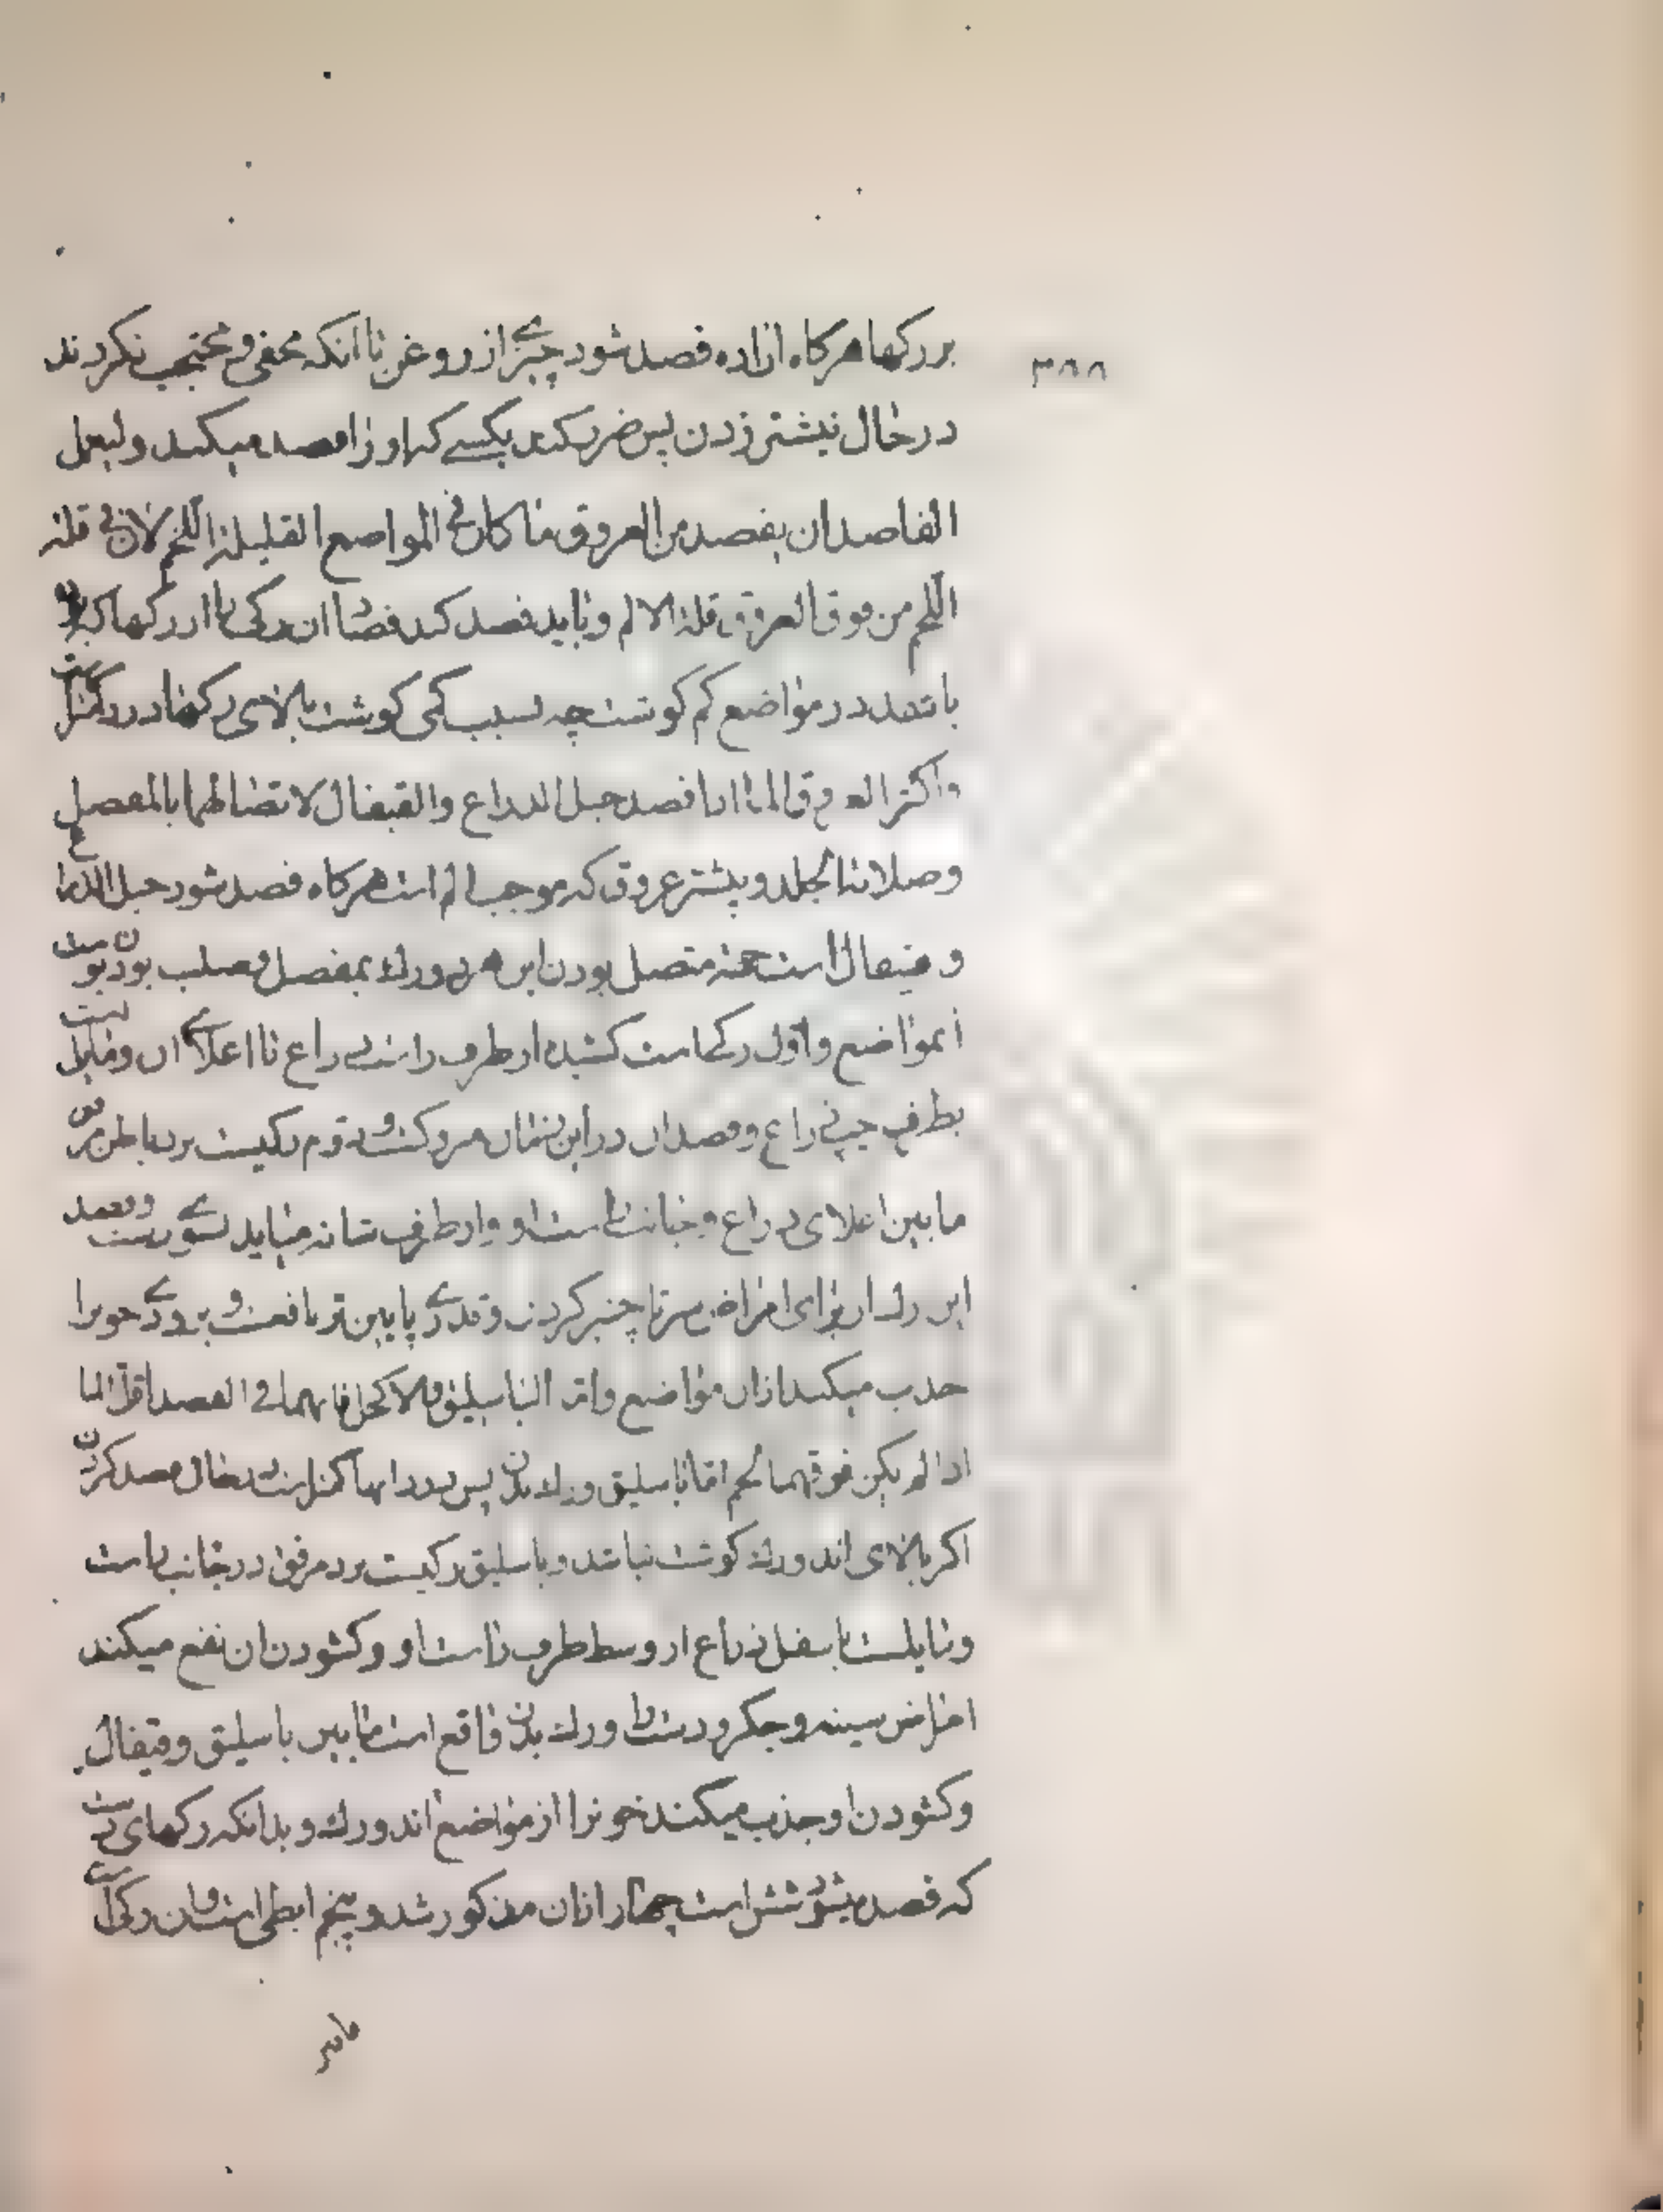 ۳۸۸
بر رکها هرکاه اراده فصد شود چیزے از روغن تا انکه مخفی و محتجب نکردند
در حال نیشتر زدن پس ضرر کند بکسے که او را فصد میکند ولیعمل
الفاصد ان یفصد من العروق ما کان فی المواضع القلیلة اللحم لان فی قلة
اللحم من فوق العروق قلة الالم و باید فصد کند فصاد ان رکی را از رکها که
باشد در مواضع کم کوشت چه بسبب کمی کوشت بالای رکها درد کمتر است
واکثر العروق الما اذا فصد حبل الذراع والقیفال لاتصالهما بالمفصل
وصلابة الجلد و بیشتر عروق که موجب الم است هرکاه فصد شود حبل الذراع
و قیفال است جهة متصل بودن این هر دو رک بمفصل و صلب بودن پوست
انمواضع و اول رکے است کشیده از طرف راست ذراع تا اعلاے ان و مایل است
بطرف چپ ذراع و فصد ان در این زمان متروکست و دوم رکیست بر باطن مرفق
مابین اعلای ذراع و جانب راست او و از طرف شانه میاید بسوے دست و فصد
این رک از برای امراض سر تا چنبر کردن و قدرے پایین تر نافعست و بزودے خونرا
جذب میکند ازان مواضع واما الباسلیق والاکحل فانهما فی الفصد اقل الما
اذا لم یکن فوقهما لحم اما باسلیق و رک بدن پس درد انها کمتر است در حال فصد کردن
اکر بالای اندورک کوشت نباشد و باسلیق رکیست بر مرفق در جانب راست
و مایلست باسفل ذراع از وسط طرف راست او و کشودن ان نفع میکند
امراض سینه و جکر و دست را و رک بدن واقع است مابین باسلیق و قیفال
و کشودن او جذب میکند خونرا از مواضع اندورک و بدانکه رکهای دست
که فصد میشود شش است چهار ازان مذکور شد و پنجم ابطی است و ان رکی است